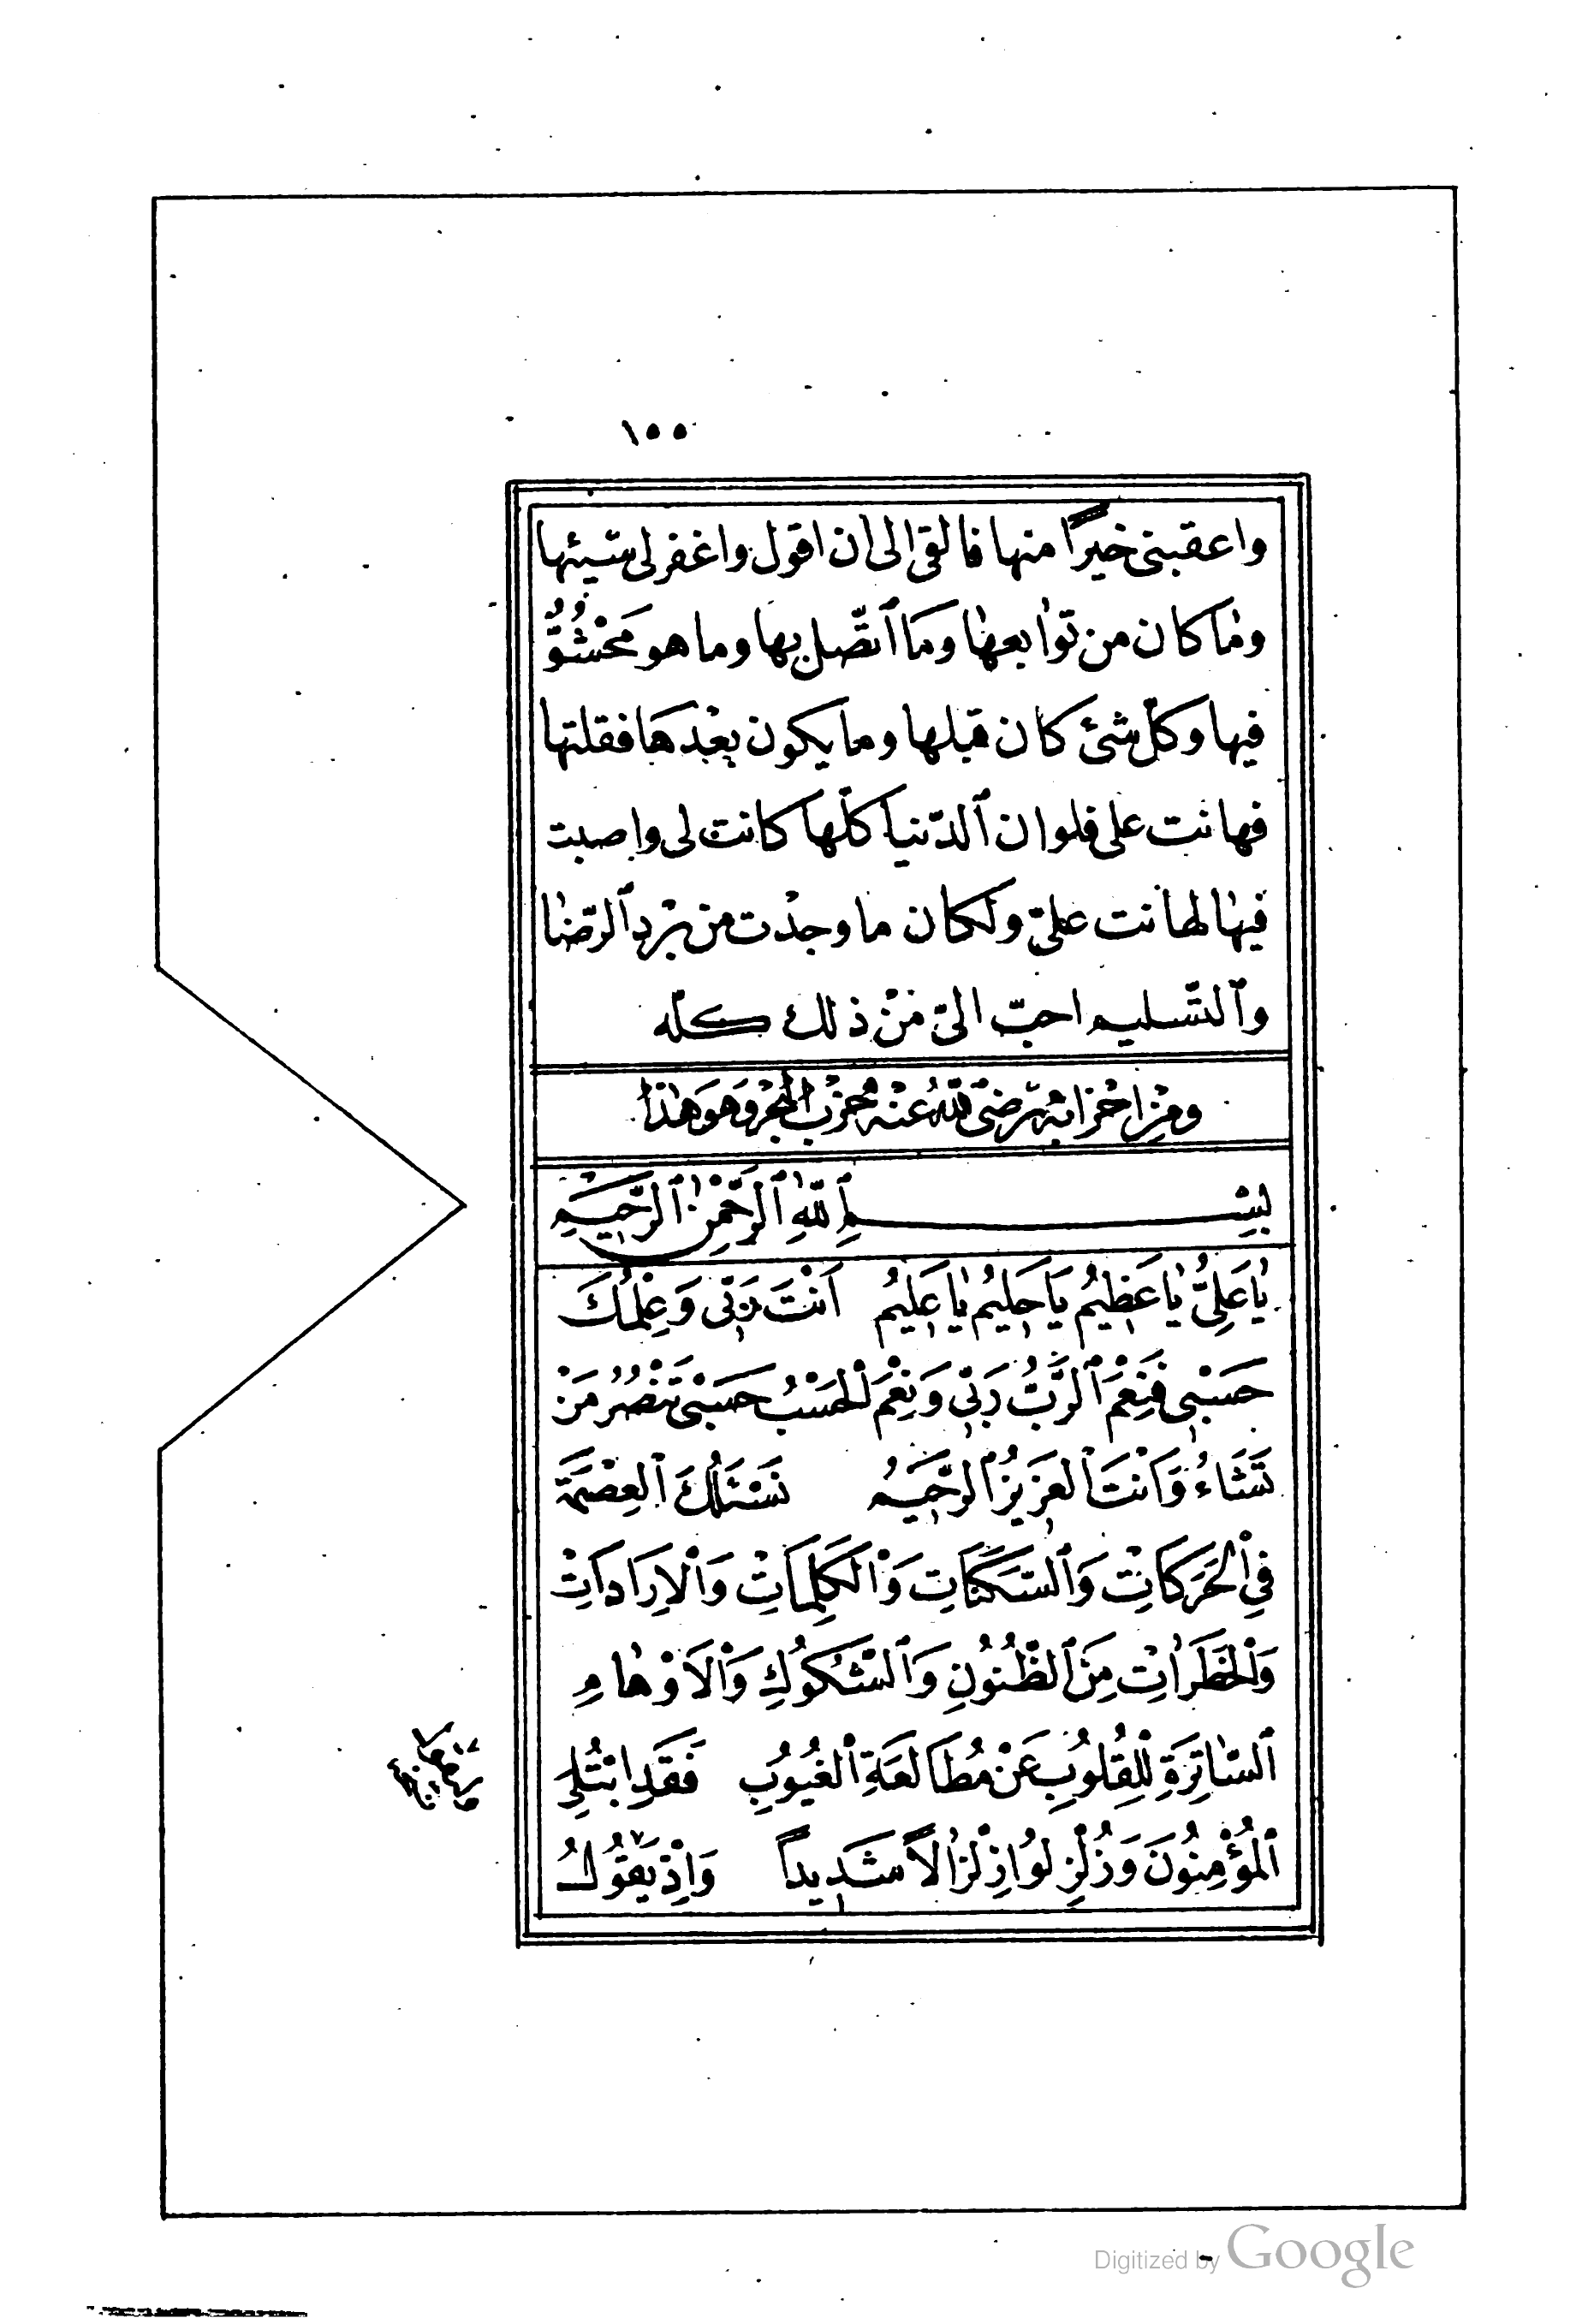 ١٥٥
واعقبنى خيرًا منها فالقى الى ان اقول واغفر لى سيئها
وما كان من توابعها وما اتّصل بها وما هو مَحْشُوٌّ
فيها وكلّ شئ كان قبلها وما يكون بعْدَها فقلتها
فهانت على فلوان الدّنيا كلّها كانت لى واصبت
فيها لهانت علىّ ولكان ما وجدْت من برد الرّضا
والتّسليم احبّ الىّ منْ ذلك كلّه
ومن احزابه رضى الله عنه حزب البحر وهو هذا
بِسْمِ اللّٰهِ الرَّحْمٰنِ الرَّحِيمِ
يَا عَلِىُّ يَا عَظِيمُ يَا حَلِيمُ يَا عَلِيمُ اَنْتَ رَبّى وَعِلْمُكَ
حَسْبِى فَنِعْمَ الرَّبُّ رَبّى وَنِعْمَ الْحَسْبُ حَسْبِى تَنْصُرُ مَنْ
تَشَاءُ وَاَنْتَ الْعَزِيزُ الرَّحِيمُ نَسْئَلُكَ الْعِصْمَةَ
فِى الْحَرَكَاتِ وَالسَّكَنَاتِ وَالْكَلِمَاتِ وَالْاِرَادَاتِ
وَالْخَطَرَاتِ مِنَ الظُّنُونِ وَالشُّكُوكِ وَالْاَوْهَامِ
السَّاتِرَةِ لِلْقُلُوبِ عَنْ مُطَالَعَةِ الْغُيُوبِ فَقَدِ ابْتُلِىَ
الْمُؤْمِنُونَ وَزُلْزِلُوا زِلْزَالًا شَدِيدًا وَاِذْ يَقُولُ
Digitized by Google